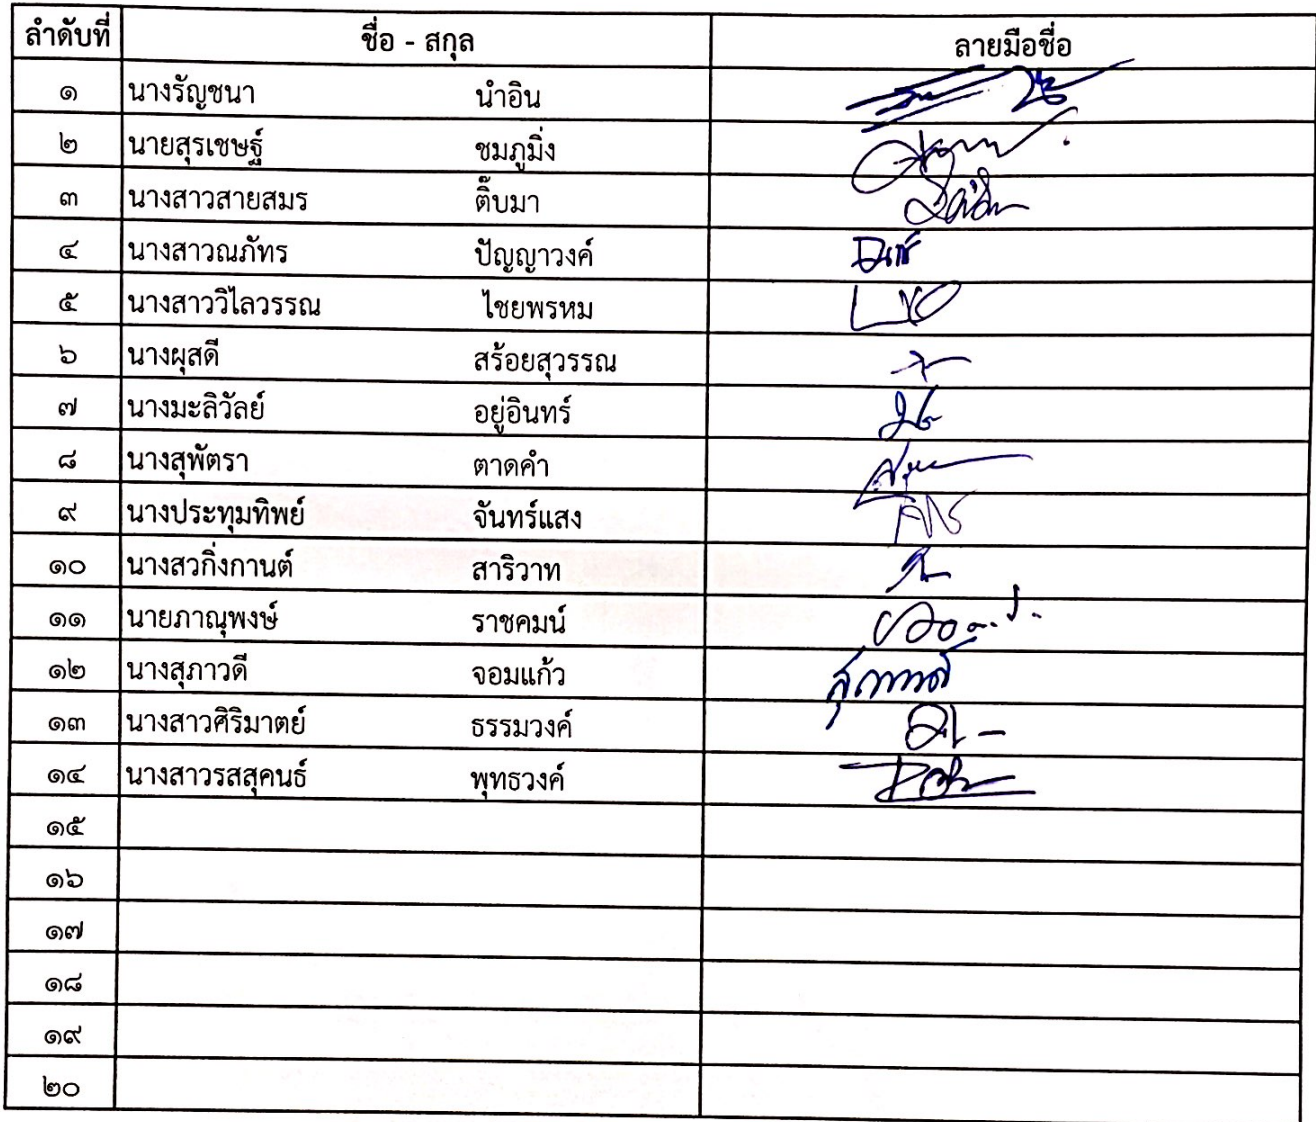 ลำดับที่ ชื่อ - สกุล ลายมือชื่อ
๑ นางรัญชนา นำอิน
๒ นายสุรเชษฐ์ ชมภูมิ่ง
๓ นางสาวสายสมร ติ๊บมา
๔ นางสาวณภัทร ปัญญาวงค์
๕ นางสาววิไลวรรณ ไชยพรหม
๖ นางผุสดี สร้อยสุวรรณ
๗ นางมะลิวัลย์ อยู่อินทร์
๘ นางสุพัตรา ตาดคำ
๙ นางประทุมทิพย์ จันทร์แสง
๑๐ นางสวกิ่งกานต์ สาริวาท
๑๑ นายภาณุพงษ์ ราชคมน์
๑๒ นางสุภาวดี จอมแก้ว สุภาวดี
๑๓ นางสาวศิริมาตย์ ธรรมวงค์
๑๔ นางสาวรสสุคนธ์ พุทธวงค์
๑๕
๑๖
๑๗
๑๘
๑๙
๒๐